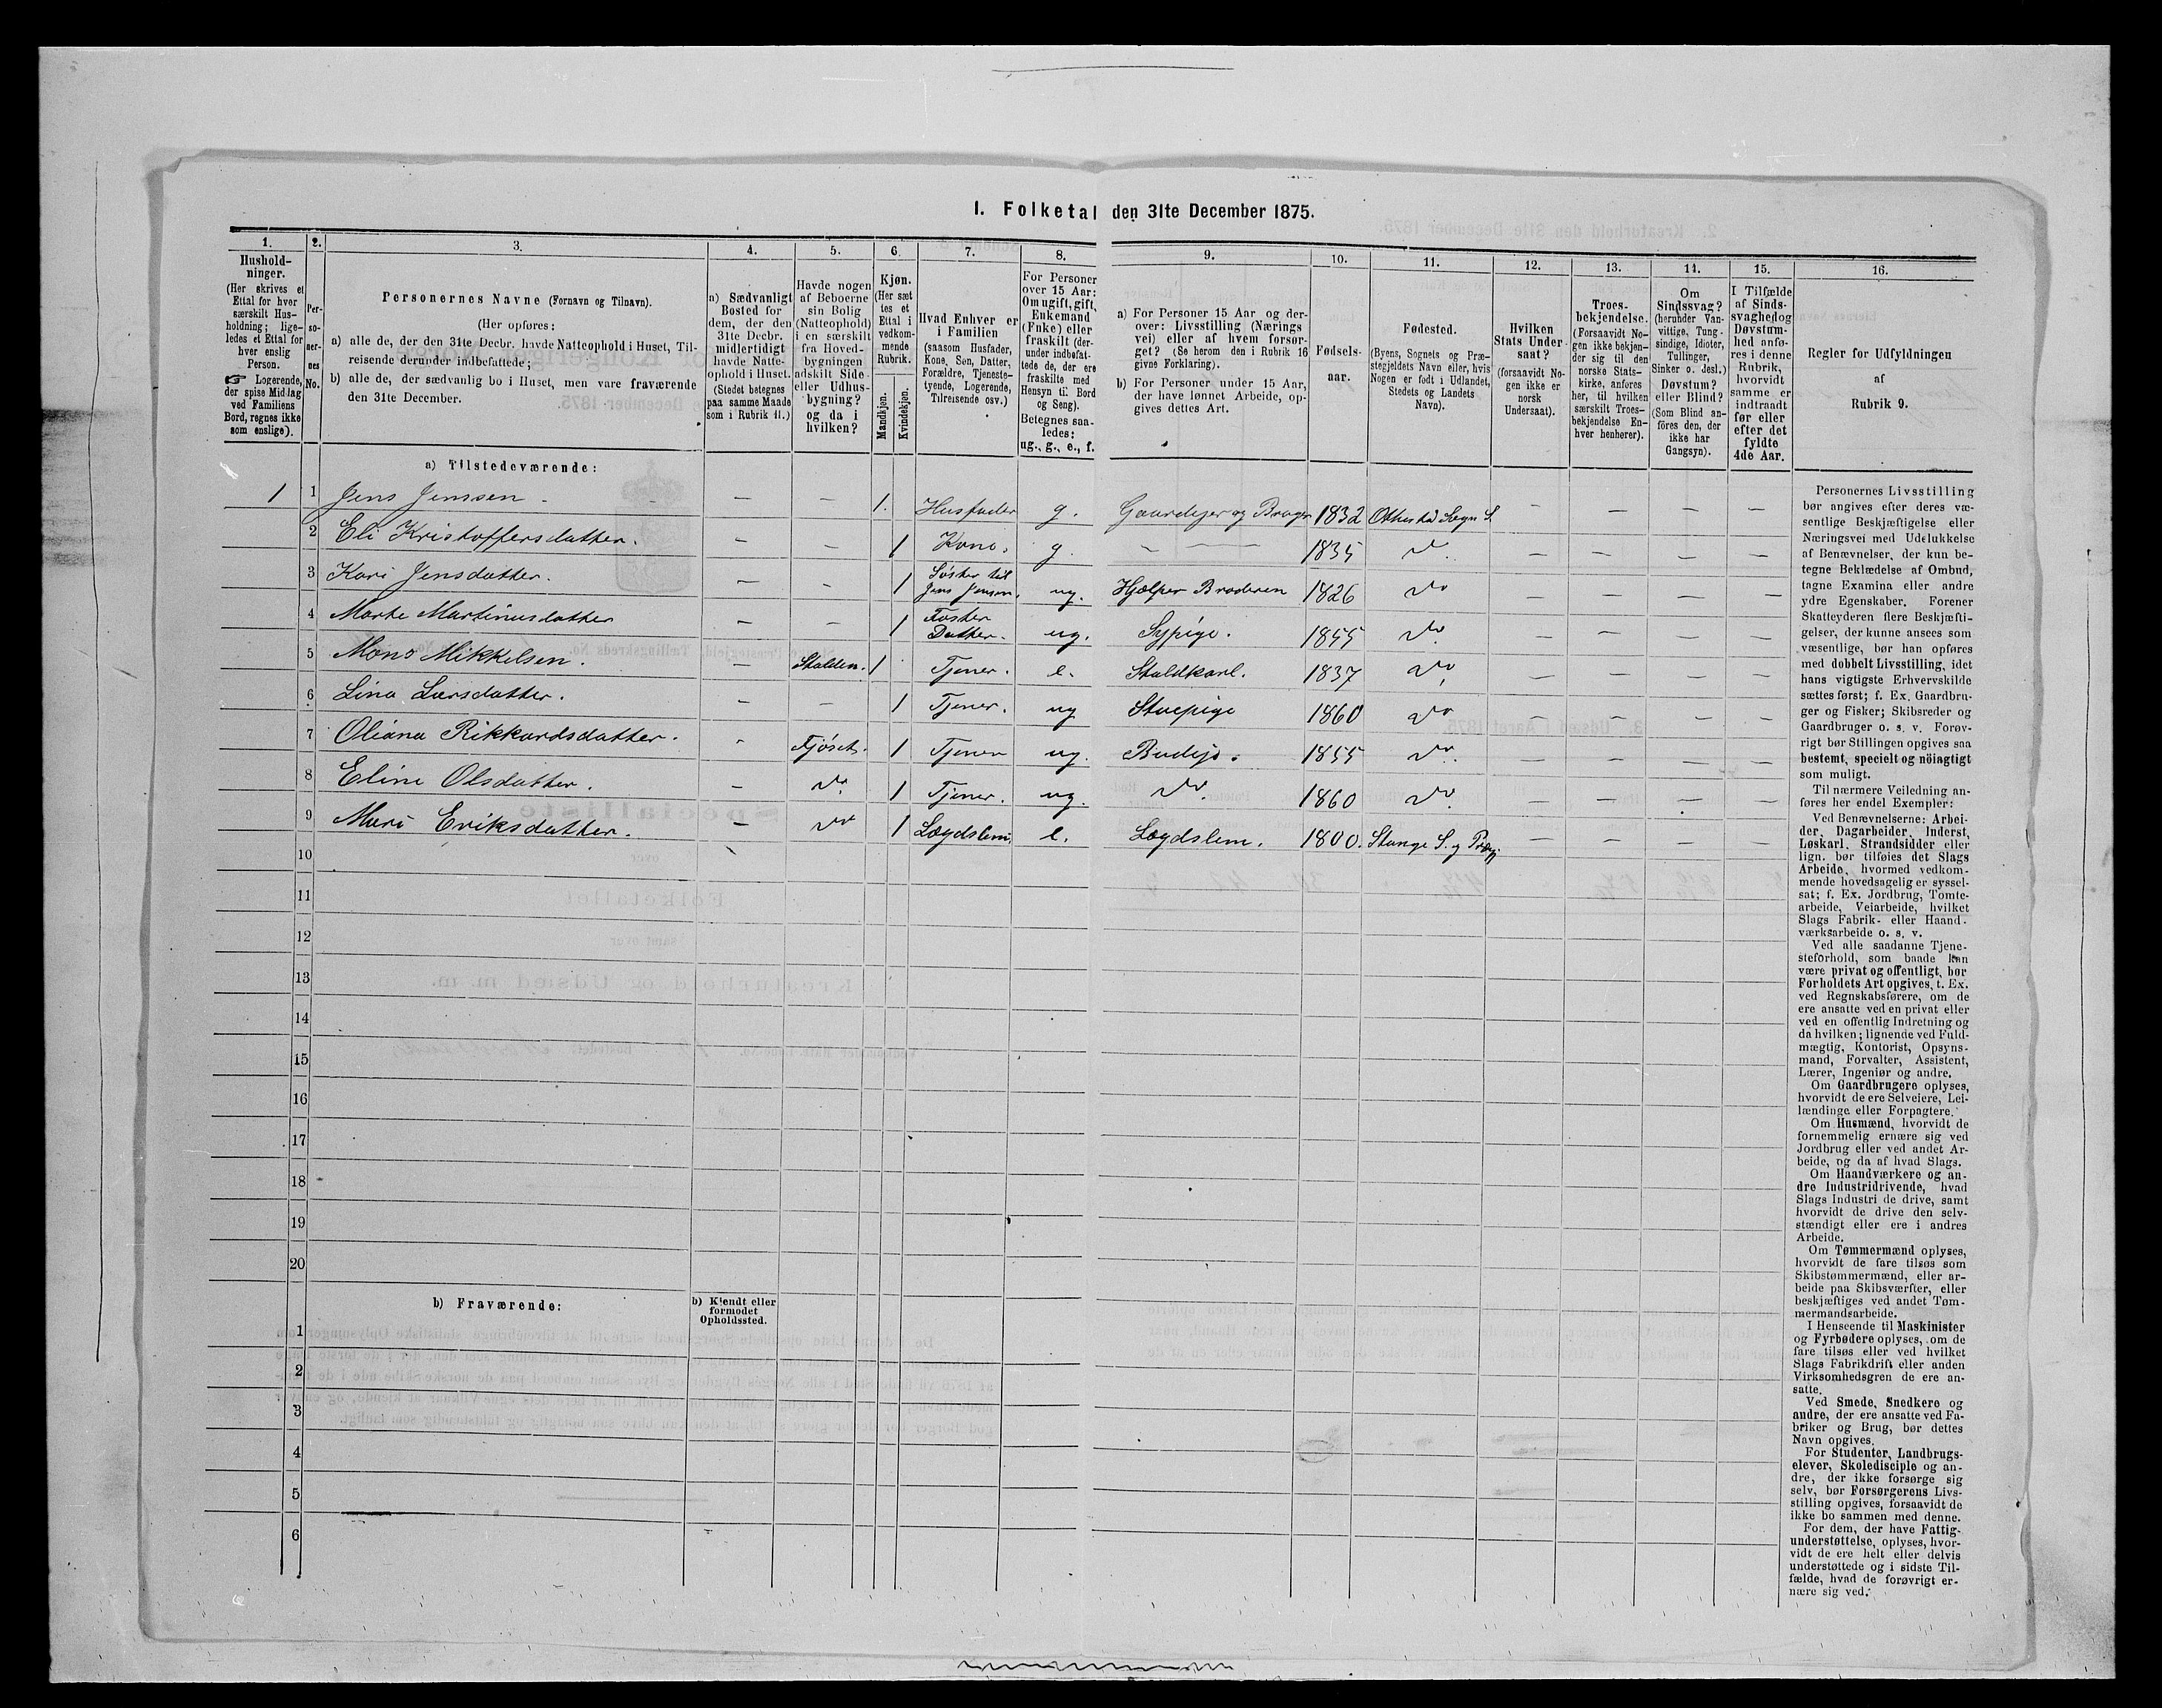 1. Folketal den 31te December 1875.
1.
Hushold-
ninger.
(Her skrives et
Ettal for hver
særskilt Hus-
holdning; lige-
ledes et Ettal for
hver enslig
Person.
☞ Logerende,
der spise Middag
ved Familiens
Bord, regnes ikke
som enslige).
2.
Per-
so-
ner-
nes
No.
3.
Personernes Navne (Fornavn og Tilnavn).
(Her opføres:
a) alle de, der den 31te Decbr. havde Natteophold i Huset, Til-
reisende derunder indbefattede;
b) alle de, der sædvanlig bo i Huset, men vare fraværende
den 31te December.
4.
a) Sædvanligt
Bosted for
dem, der den
31te Decbr.
midlertidigt
havde Natte-
ophold i Huset.
(Stedet betegnes
paa samme Maade
som i Rubrik 11.)
5.
Havde nogen
af Beboerne
sin Bolig
(Natteophold)
i en særskilt
fra Hoved-
bygningen
adskilt Side-
eller Udhus-
bygning?
og da i
hvilken?
6.
Kjøn.
(Her sæt-
tes et
Ettal i
vedkom-
mende
Rubrik.
Mandkjøn.
Kvindekjøn.
7.
Hvad Enhver er
i Familien
(saasom Husfader,
Kone, Søn, Datter,
Forældre, Tjeneste-
tyende, Logerende,
Tilreisende osv.)
8.
For Personer
over 15 Aar:
Om ugift, gift,
Enkemand
(Enke) eller
fraskilt (der-
under indbefat-
tede de, der ere
fraskilte med
Hensyn til Bord
og Seng).
Betegnes saa-
ledes:
ug., g., e., f.
9.
a) For Personer 15 Aar og der-
over: Livsstilling (Nærings
vei) eller af hvem forsør-
get? (Se herom den i Rubrik 16
givne Forklaring).
b) For Personer under 15 Aar,
der have lønnet Arbeide, op-
gives dettes Art.
10.
Fødsels-
aar.
11.
Fødested.
(Byens, Sognets og Præ-
stegjeldets Navn eller, hvis
Nogen er født i Udlandet,
Stedets og Landets
Navn).
12.
Hvilken
Stats Under-
saat?
(forsaavidt No-
gen ikke er
norsk
Undersaat).
13.
Troes-
bekjendelse.
(Forsaavidt No-
gen ikke bekjen-
der sig til den
norske Stats-
kirke, anføres
her, til hvilken
særskilt Troes-
bekjendelse En-
hver henhører).
14.
Om
Sindssvag?
(herunder Van-
vittige, Tung-
sindige, Idioter,
Tullinger,
Sinker o. desl.)
Døvstum?
eller Blind?
(Som Blind an-
føres den, der
ikke har
Gangsyn).
15.
I Tilfælde
af Sinds-
svaghed og
Døvstum-
hed anfø-
res i denne
Rubrik,
hvorvidt
samme er
indtraadt
før eller
efter det
fyldte
4de Aar.
16.
Regler for Udfyldningen
af
Rubrik 9.
a) Tilstedeværende:
1 1 Jens Jenssen. — — 1. Husfader g. Gaardejer og Bruger 1832 Othestad Sogn S. — — — —
2 Eli Kristoffersdatter. — — 1 Kone. g. — — — 1835 do. — — — —
3 Kari Jensdatter. — — 1 Søster til Jens Jensen. ug. Hjælper Broderen 1826 do — — — —
4 Marte Martinusdatter — — 1 Foster Datter. ug. Sypige. 1855 do. — — — —
5 Mons Mikkelsen. — Stalden. 1 Tjener. e. Staldkarl. 1837 do, — — — —
6 Lina Larsdatter. — — 1 Tjener. ug Stuepige 1860 do — — — —
7 Oliana Rikkardsdatter. - Fjøset. 1 Tjener ug. Budeje. 1855 do. — — — —
8 Eline Olsdatter. — do. 1 Tjener. ug. do. 1860 do. — — — —
9 Mari Eriksdatter. — do 1 Lægdslem. e. Lægdslem. 1800. Stange S. og Præg. — — —
10
11
12
13
14
15
16
17
18
19
20
b) Fraværende:
b) Kjendt eller
formodet
Opholdssted.
1
2
3
4
5
6
Personernes Livsstilling
bør angives efter deres væ-
sentlige Beskjæftigelse eller
Næringsvei med Udelukkelse
af Benævnelser, der kun be-
tegne Beklædelse af Ombud,
tagne Examina eller andre
ydre Egenskaber. Forener
Skatteyderen flere Beskjæfti-
gelser, der kunne ansees som
væsentlige, bør han opføres
med dobbelt Livsstilling, idet
hans vigtigste Erhvervskilde
sættes først; f. Ex. Gaardbru-
ger og Fisker; Skibsreder og
Gaardbruger o. s. v. Forøv-
rigt bør Stillingen opgives saa
bestemt, specielt og nöiagtigt
som muligt.
Til nærmere Veiledning an-
føres her endel Exempler:
Ved Benævnelserne: Arbei-
der, Dagarbeider, Inderst,
Løskarl, Strandsidder eller
lign. bør tilføies det Slags
Arbeide, hvormed vedkom-
mende hovedsagelig er syssel-
sat; f. Ex. Jordbrug, Tomte-
arbeide, Veiarbeide, hvilket
Slags Fabrik- eller Haand-
værksarbeide o. s. v.
Ved alle saadanne Tjene-
steforhold, som baade kan
være privat og offentligt, bør
Forholdets Art opgives, t. Ex.
ved Regnskabsførere, om de
ere ansatte ved en privat eller
ved en offentlig Indretning og
da hvilken; lignende ved Fuld-
mægtig, Kontorist, Opsyns-
mand, Forvalter, Assistent,
Lærer, Ingeniør og andre.
Om Gaardbrugere oplyses,
hvorvidt de ere Selveiere, Lei-
lændinge eller Forpagtere.
Om Husmænd, hvorvidt de
fornemmelig ernære sig ved
Jordbrug eller ved andet Ar-
beide, og da af hvad Slags.
Om Haandværkere og an-
dre Industridrivende, hvad
Slags Industri de drive, samt
hvorvidt de drive den selv-
stændigt eller ere i andres
Arbeide.
Om Tømmermænd oplyses,
hvorvidt de fare tilsøs som
Skibstømmermænd, eller ar-
beide paa Skibsværfter, eller
beskjæftiges ved andet Tøm-
mermandsarbeide.
I Henseende til Maskinister
og Fyrbødere oplyses, om de
fare tilsøs eller ved hvilket
Slags Fabrikdrift eller anden
Virksomhedsgren de ere an-
satte.
Ved Smede, Snedkere og
andre, der ere ansatte ved Fa-
briker og Brug, bør dettes
Navn opgives.
For Studenter, Landbrugs-
elever, Skoledisciple og an-
dre, der ikke forsørge sig
selv, bør Forsørgerens Livs-
stilling opgives, forsaavidt de
ikke bo sammen med denne.
For dem, der have Fattig-
understøttelse, oplyses, hvor-
vidt de ere helt eller delvis
understøttede og i sidste Til-
fælde, hvad de forøvrigt er-
nære sig ved.